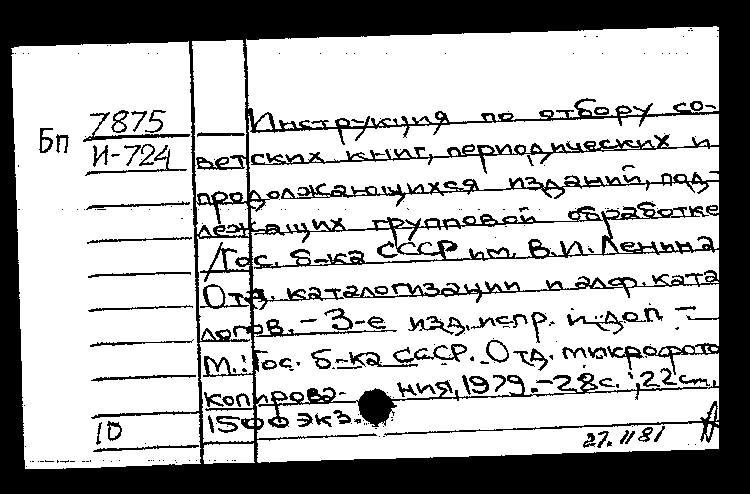 7875
Бп И-724
Инструкция по отбору со-
ветских книг, периодических и
продолжающихся изданий, под-
лежащих групповой обработке
/Гос. б-ка СССР им. В.И. Ленина
Отд. каталогизации и алф. ката
логов. - 3-е изд. испр. и доп -
М.: Гос. б-ка СССР. Отд. микрофото
копирова- ния, 1979. - 28 с.; 22 см.
1500 экз.
10
27.11 81